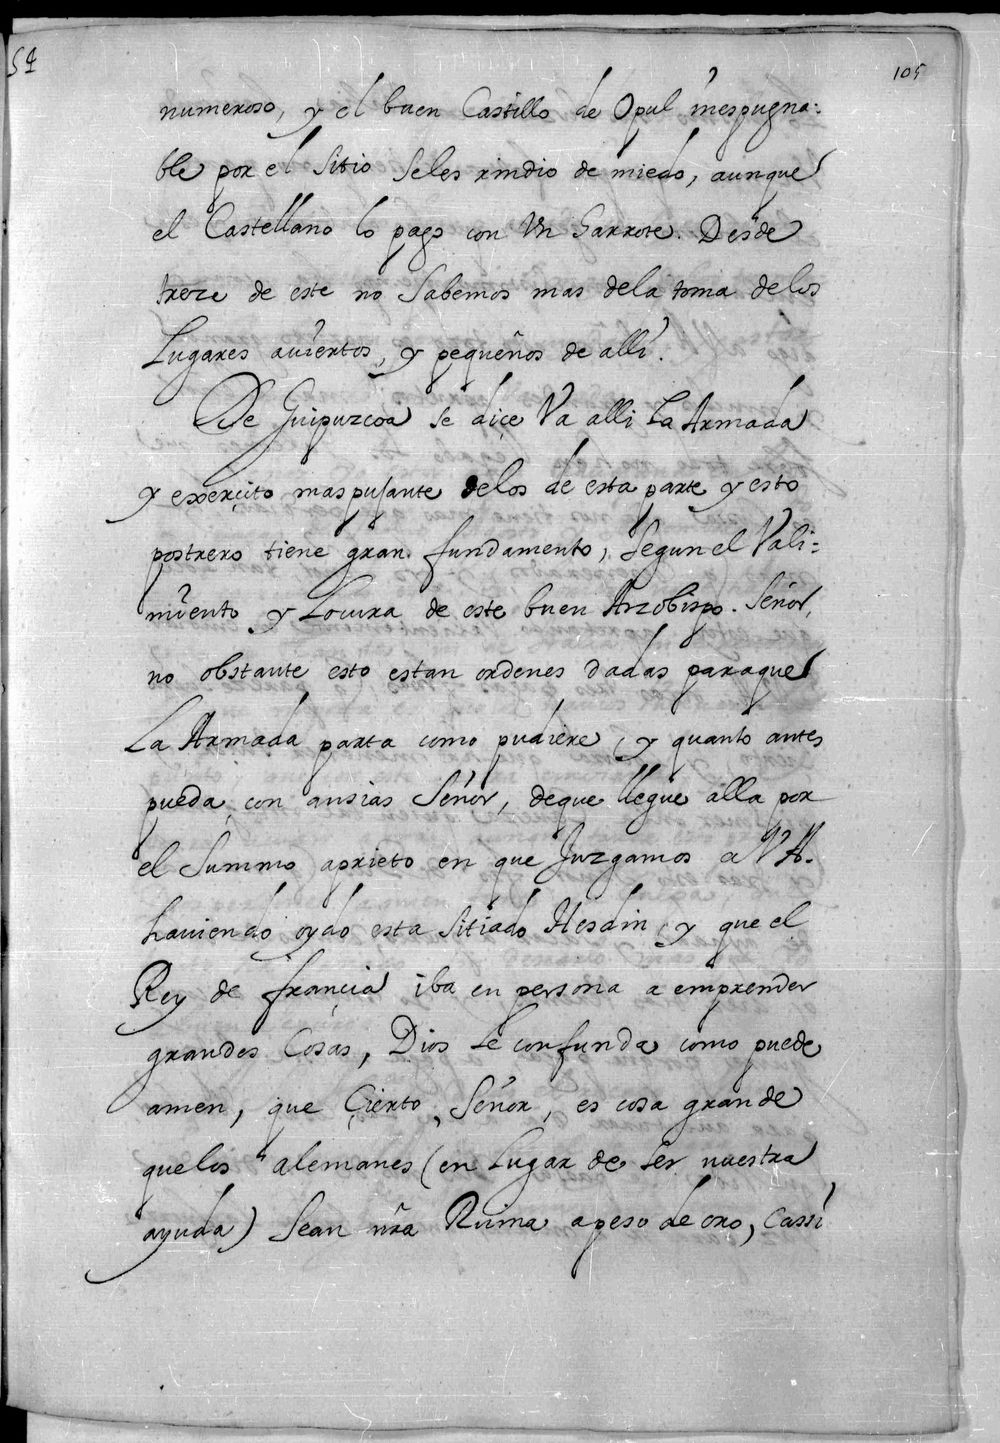 54
105
numeroso, y el buen Castillo de Opul inespugna:
ble por el sitio seles rindio de miedo, aunque
el Castellano lo pago con Un Garrote. Desde
treze de este no sabemos mas dela toma delos
Lugares auiertos, y pequeños de alli.
De Guipuzcoa se diçe Va alli La Armada
y exerçito maspujante delos de esta parte y esto
postrero tiene gran fundamento, segun el Vali=
miento y Locura de este buen Arzobispo. Señor,
no obstante esto estan ordenes dadas paraque
La Armada parta como pudiere, y quanto antes
pueda, con ansias Señor, deque llegue alla por
el Summo aprieto en que Juzgamos a V A.
hauiendo oydo esta Sitiado Hesdin, y que el
Rey de francia iba en persona a emprender
grandes Cosas, Dios le confunda como puede
amen, que Çierto, Señor, es cosa grande
quelos alemanes (en Lugar de ser nuestra
ayuda) Sean nra Ruina apeso de oro, Cassi